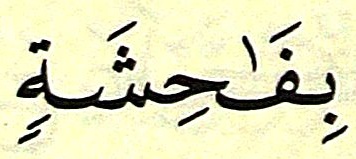 بِفَٰحِشَةٍ